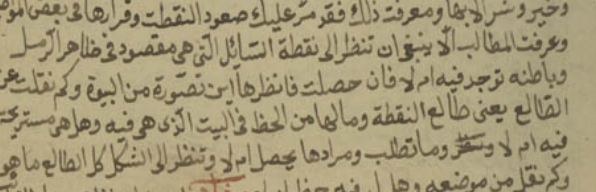 وخير وشر لابها ومعرفت ذلك فقد مر عليك صعود النقطت وقرارها فى بعض
وعرفت المطالب الا ينبغى ان تنظر الى نقطة السائل التى هى مقصود فى ظاهر الرمل
وباطنه توجد فيه ام لا فان حصلت فانظرها اين تصورة من البيوة وكم نقلت عن
الطالع يعنى طالع النقطة ومالها من الحظ فى البيت الذى هى فيه وهل هى مستريحة
فيه ام لا وما تطلب ومرادها يحصل ام لا وتنظر الى الشكل كل الطالع ما هو
وكم نقل من موضعه وهل له فيه حظ